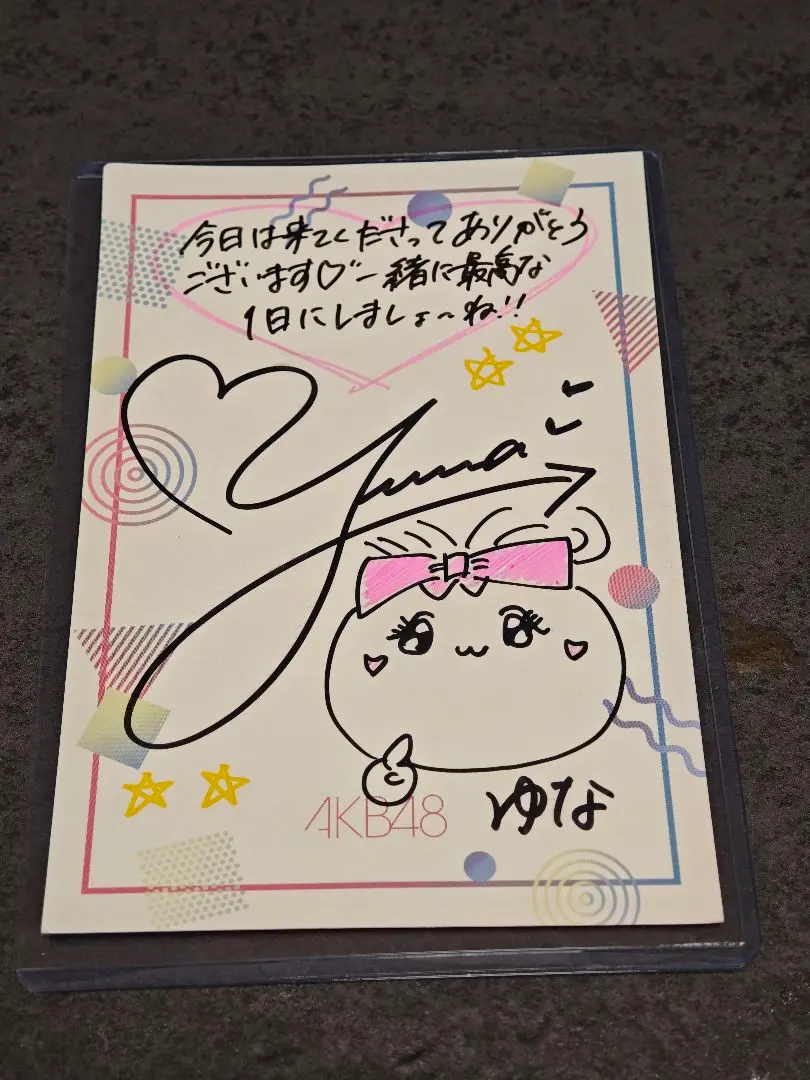 今日は来てくださってありがとう
ございます♡一緒に最高な
1日にしましょ〜ね!!
yuna
AKB48
ゆな